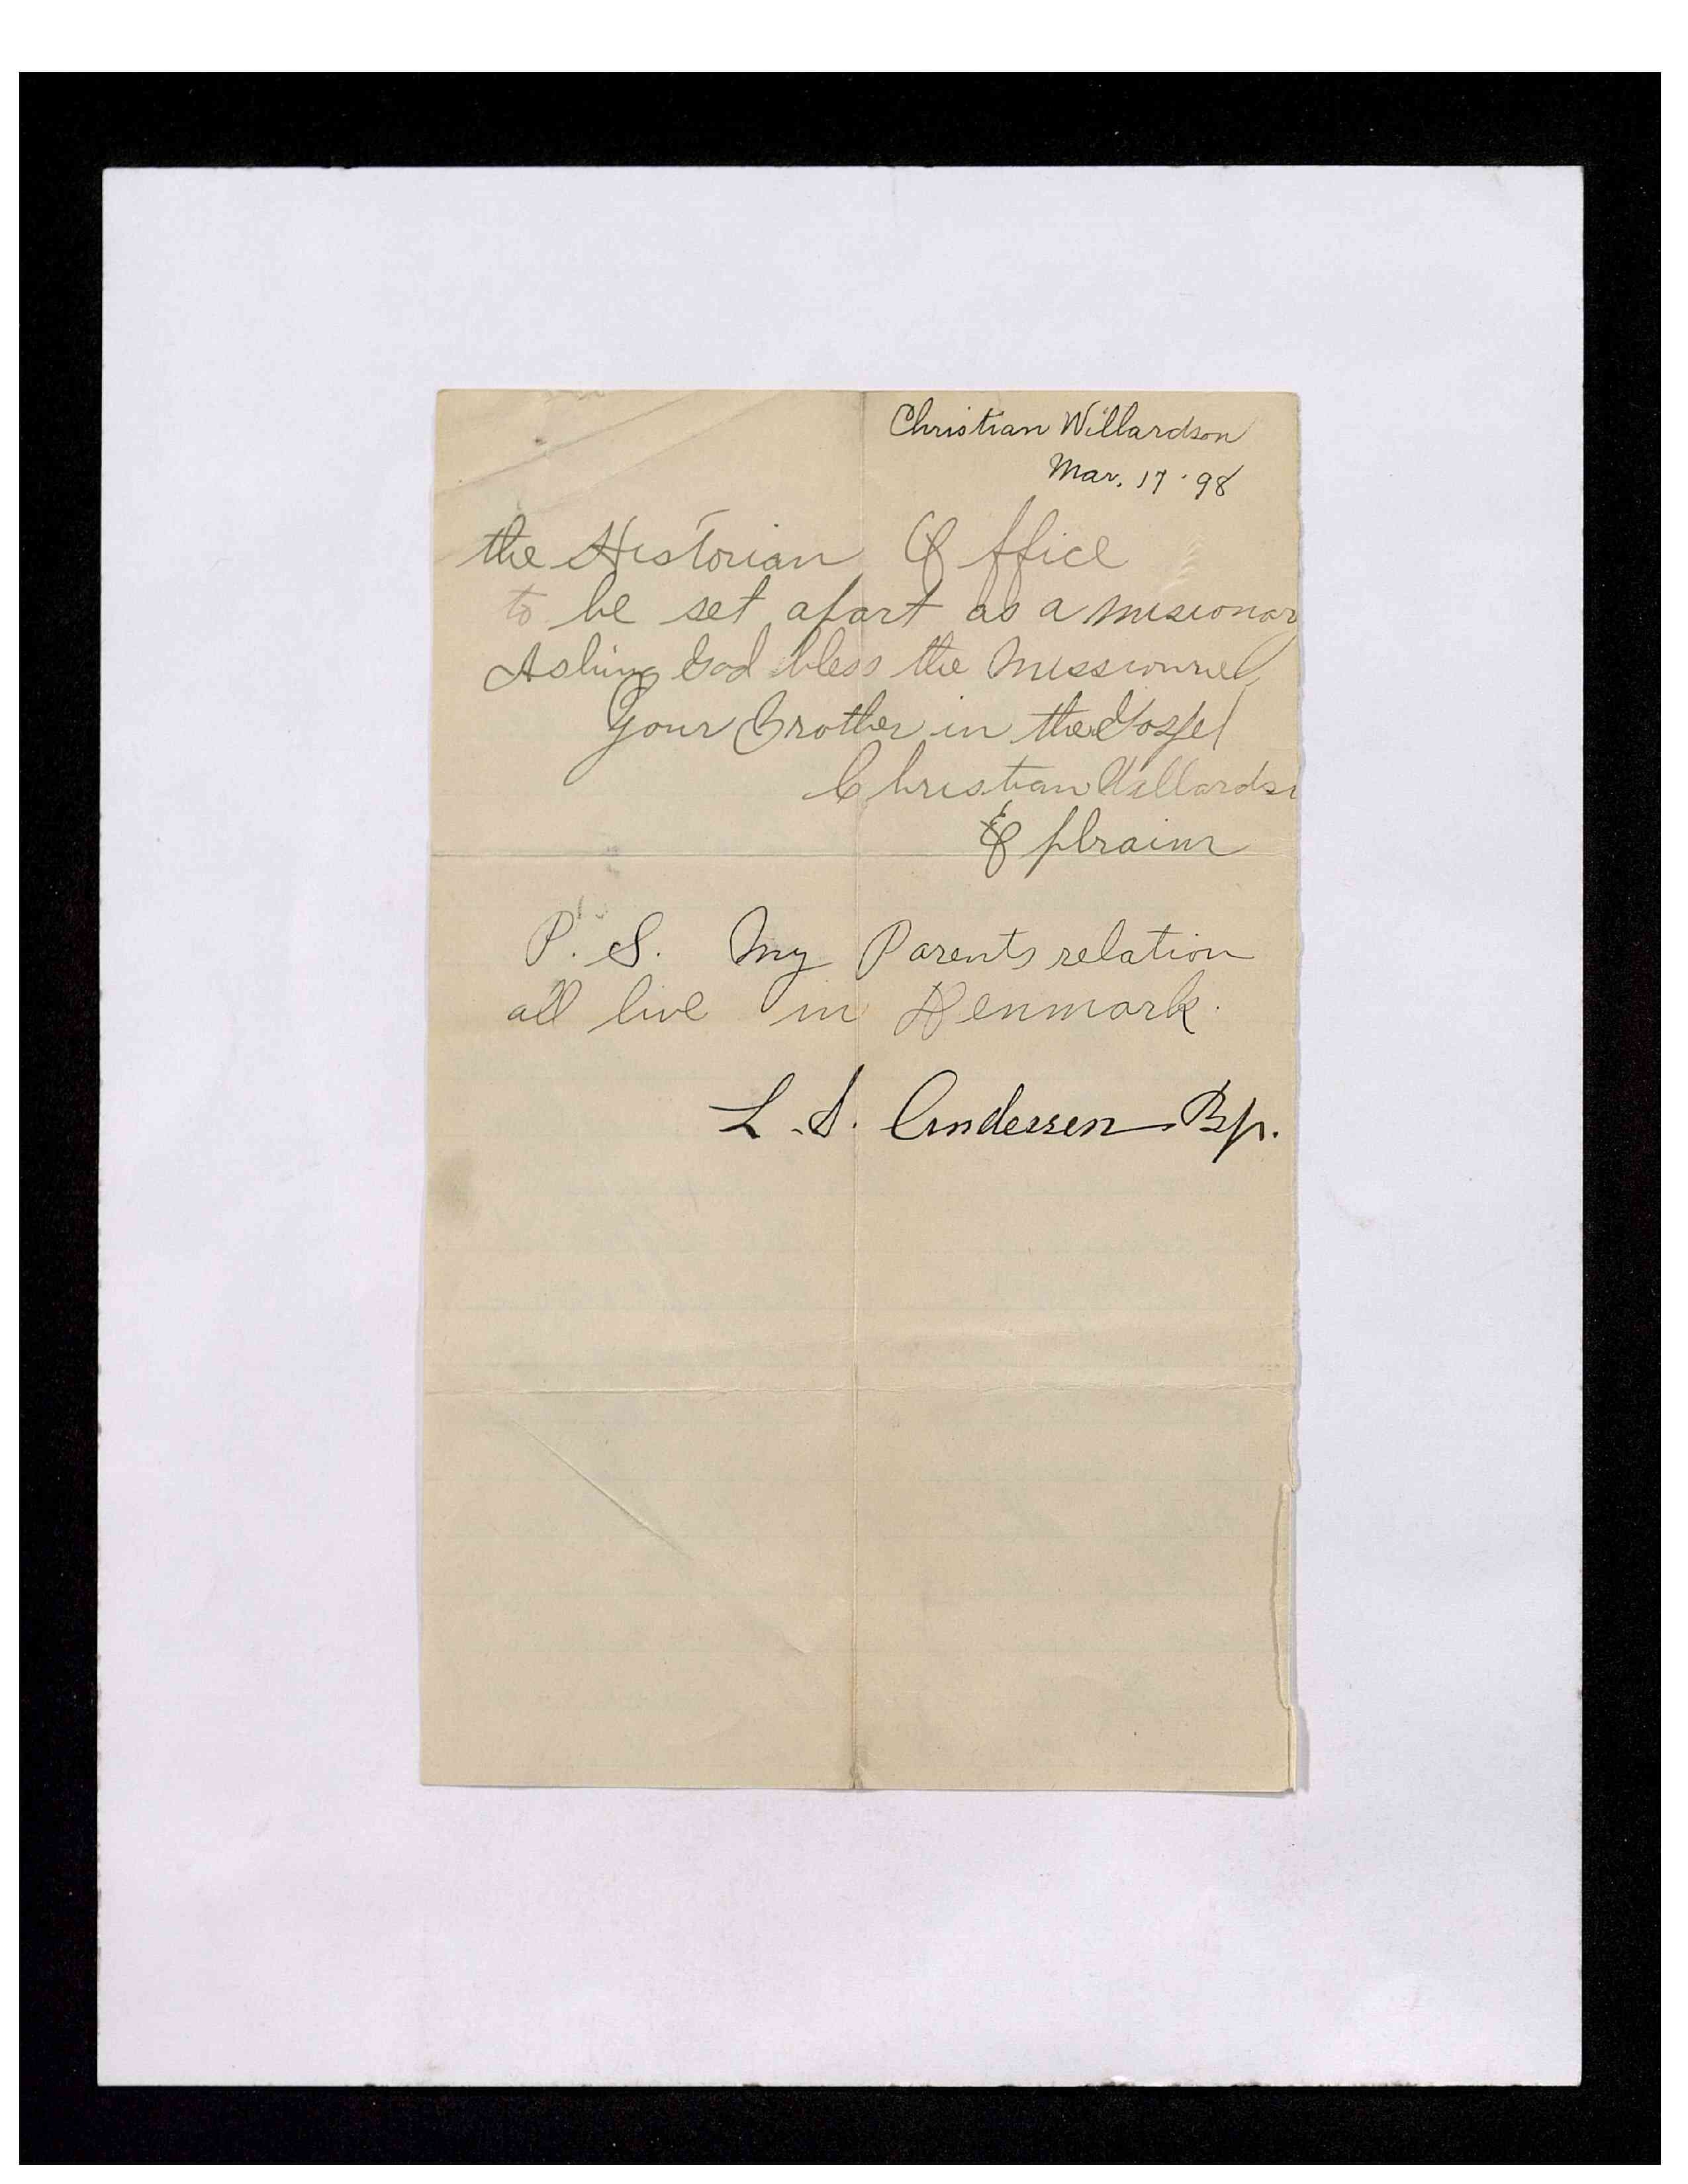 Christian Willardson
Mar. 17 '98
the Historian Office
to be set apart as a misionary
Asking God bless the
Your Brother in the Gospel
Christian Willardsn
Ephraim
P. S. My Parents relation
all live in Denmark.
L. S. Andersen Bp.